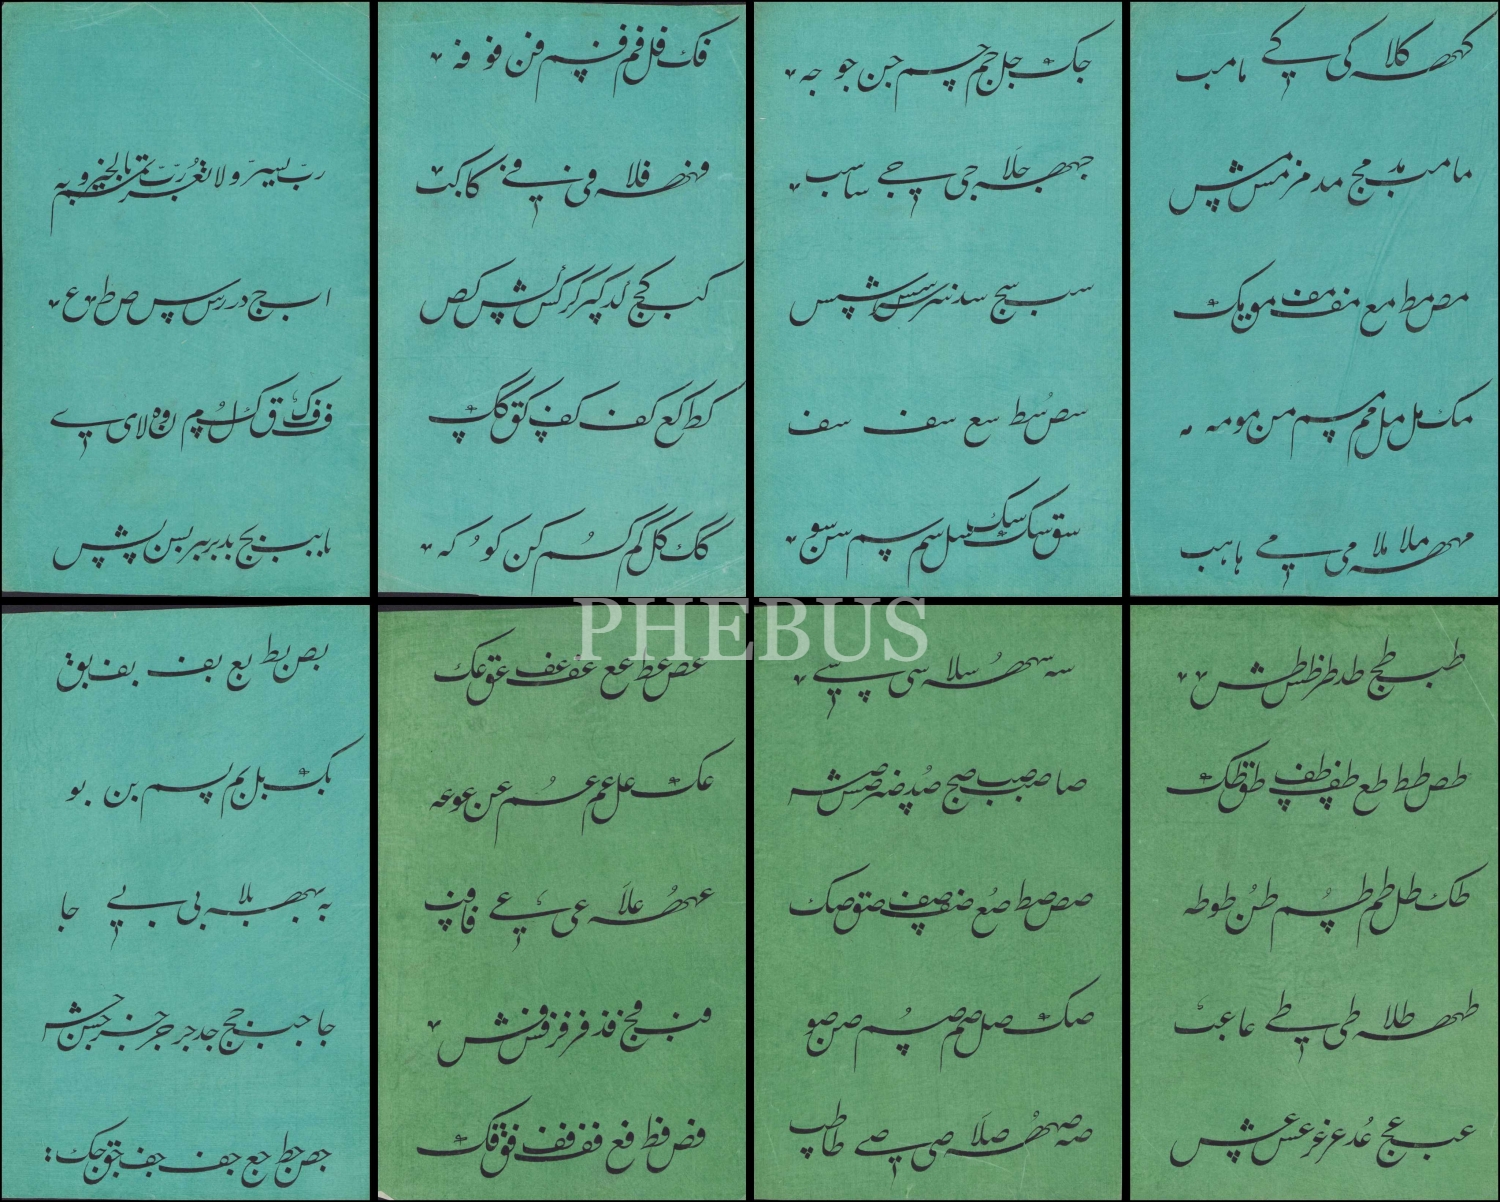 فک فل فم فم فن فو فه
رب یسر ولا تعسر رب تمم بالخیر وبه
فهه فلا فی فے کا کب
ا ب ج د ر س س ص ط ع
کب کج کد کر کس کش کص
ف ف ک ق ک ل م ن و ه لا ی ے
کط کع کف کف کق کک
با بب بج بد بر بس بن بس
کک کل کم کم کن کو که
جک جل جم جم جن جو جه
جهه جلا جی جے سا سب
سب سج سد سر سس سس
سص سط سع سف سف
سق سک سک سل سم سم سن سو
کهه کلا کی کے ما مب
ما مب مد مج مد مر مس مس
مص مط مع مف مف مو مک
مک مل مل مم مم من مو مه مه
مهه ملا ملا می مے ها هب
بص بط بع بف بف بق
بک بل بم بم بن بو
به بهه بلا بی بے جا
جا جب جج جد جر جر جس جس
جص جط جع جف جف جق جک
عص عط عع عف عف عق عک
عک عل عم عم عن عو عه
عهه علا عی عے فا فب
فب فج فد فر فر فس فس
فص فط فع فف فف فق فک
سه سهه سلا سی سے
صا صب صب صج صد صر صس صس
صص صط صع صف صف صق صک
صک صل صم صم صن صو
صه صهه صلا صی صے طا طب
طب طج طد طر طس طس
طص طط طع طف طف طق طک
طک طل طم طم طن طو طه
طهه طلا طی طے عا عب
عب عج عد عر عر عس عس
PHEBUS